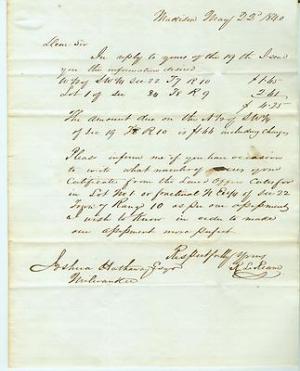 Madison May 22d 1840
Dear Sir
In reply to yours of the 19th I send
you the information desired
W½ of SW¼ Sec 22 T7 R10 $1.65
Lot 1 of Sec 34 T8 R9 2.61
The amount due on the N½ of SW¼
of Sec 19 T8 R10 is $1.44 including charges
Please inform me if you have occasion
to write what number your
Certificate from the Land Office Calls for
in Lot No 1 or fractional of Sec 22
Town 7 Range 10 as per our assessment
I wish to know in order to make
our assessment more perfect.
Respectfully Yours
Joshua Hathaway Esqr
Milwaukee